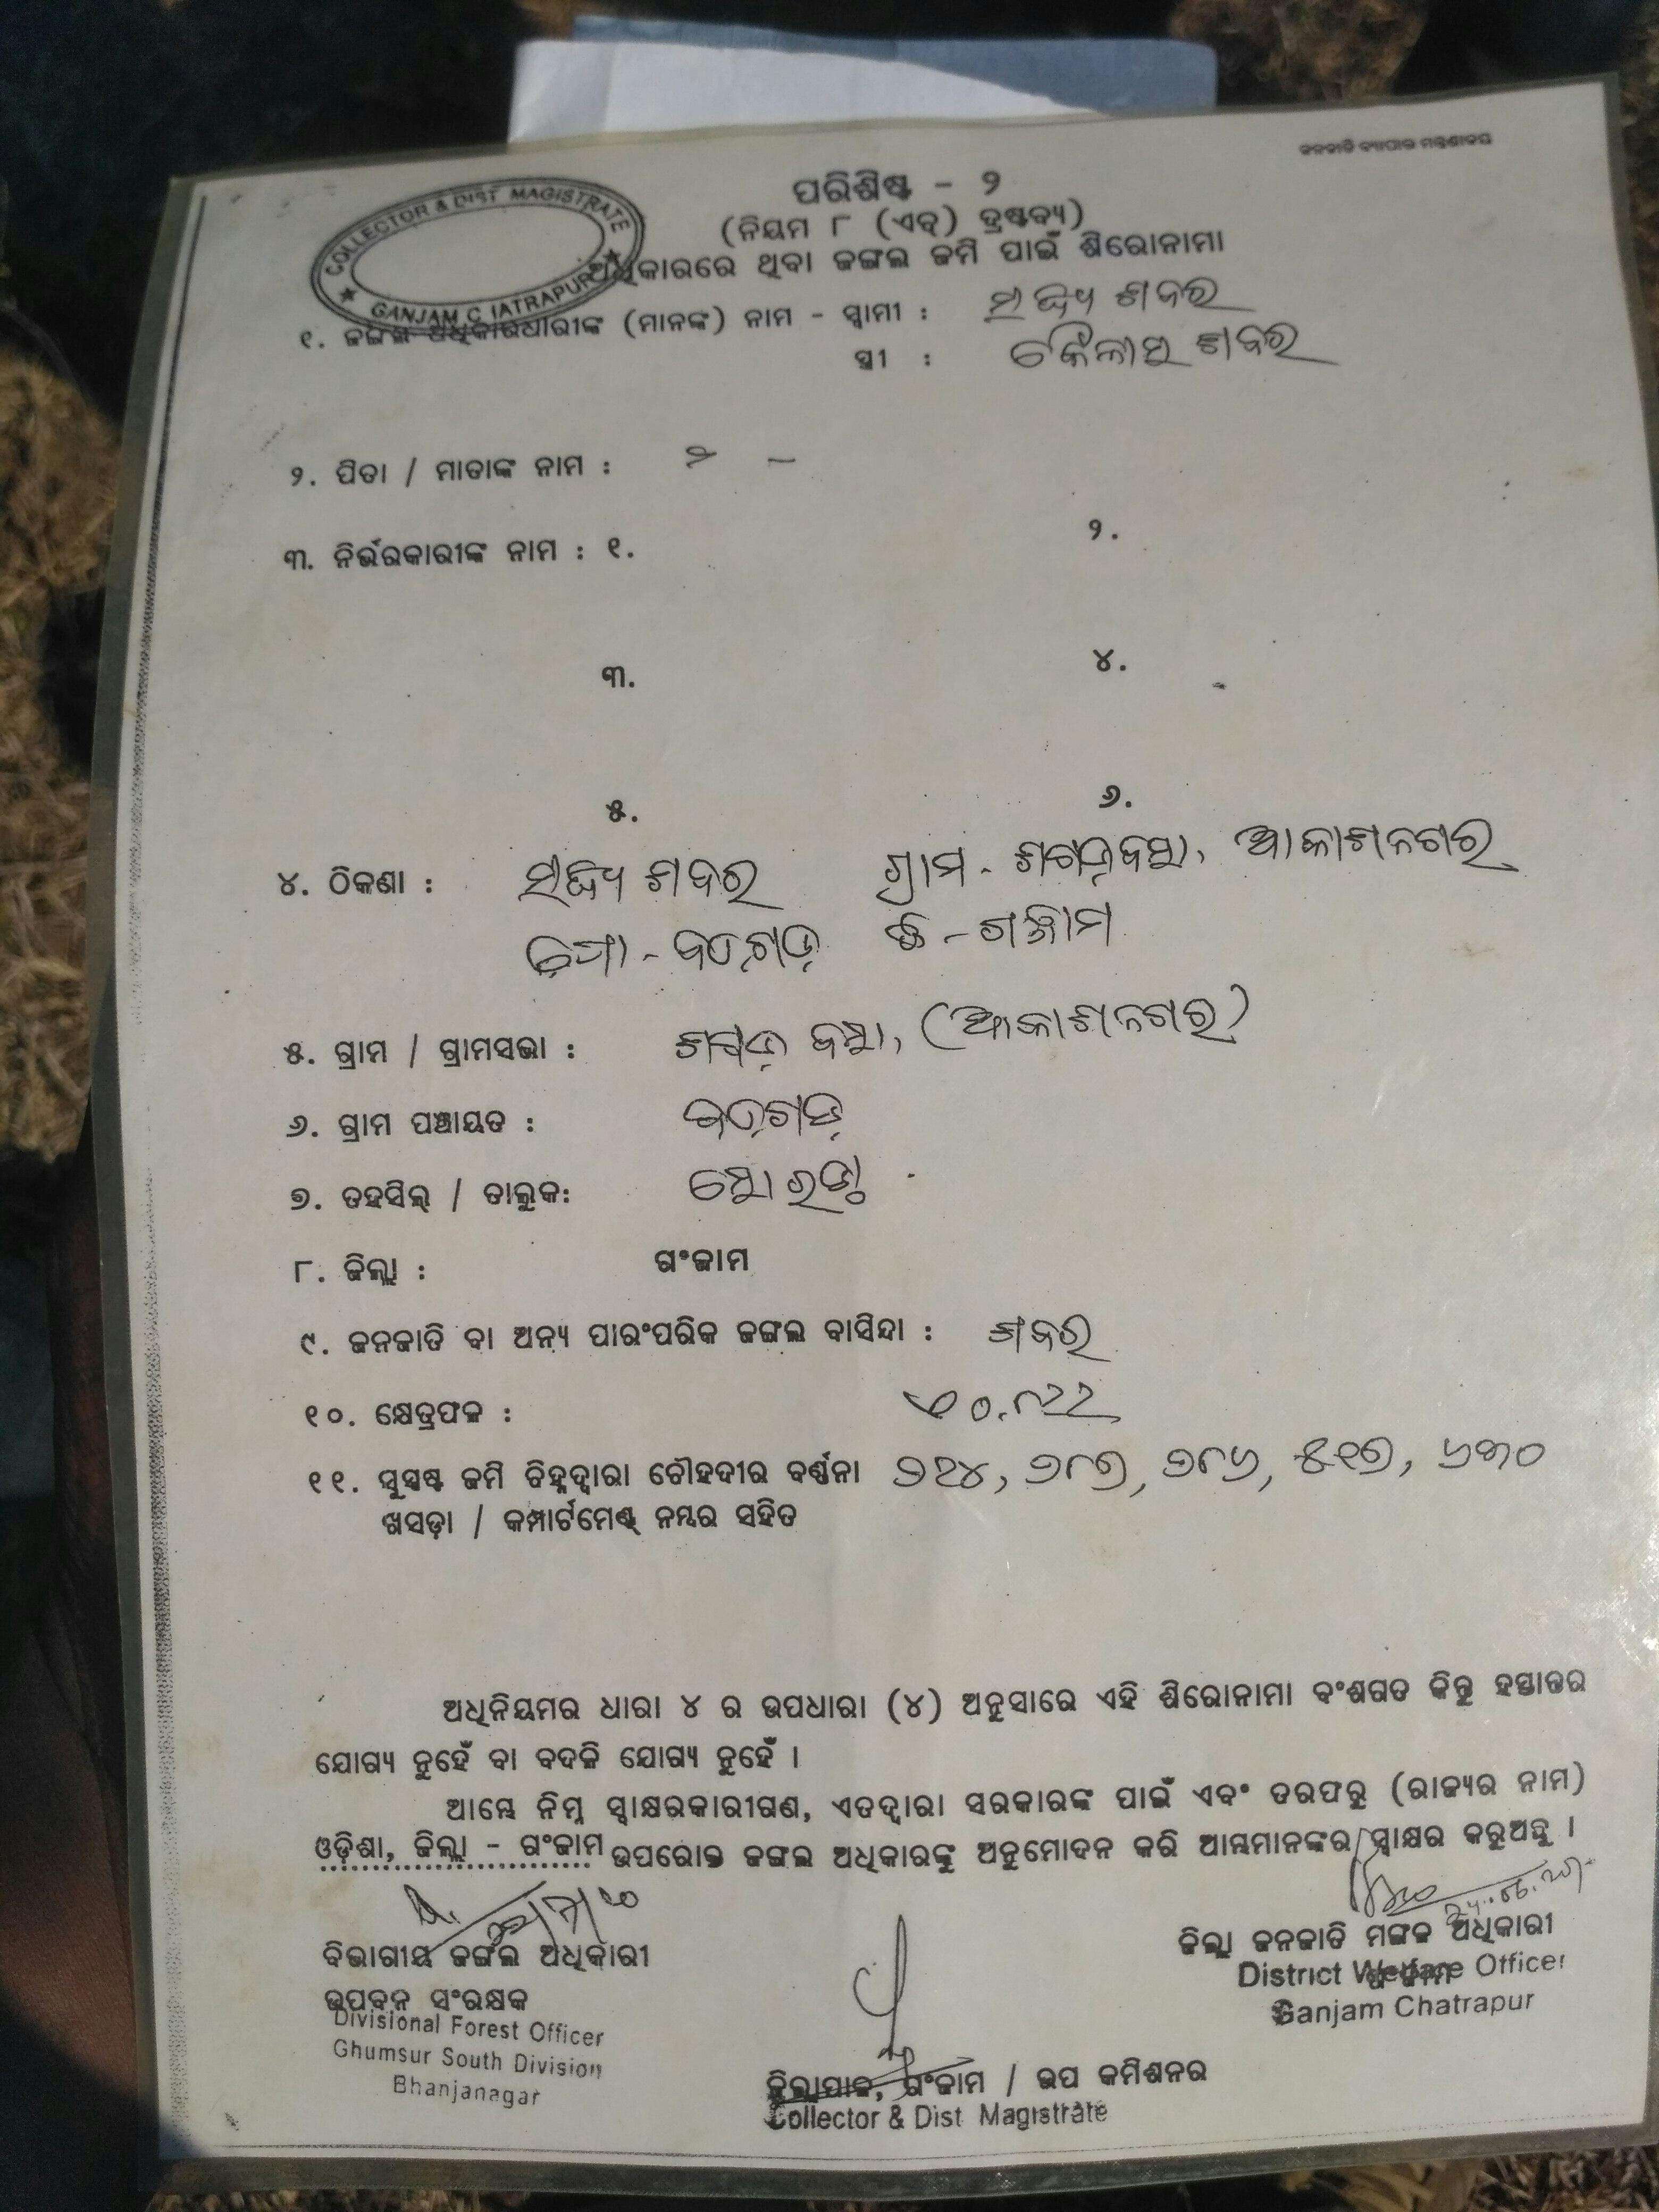 ଜନଜାତି ବ୍ୟାପାର ମନ୍ତ୍ରଣାଳୟ
ପରିଶିଷ୍ଟ - ୨
(ନିୟମ ୮ (ଏଚ୍) ଦ୍ରଷ୍ଟବ୍ୟ)
ଅଧିକାରରେ ଥିବା ଜଙ୍ଗଲ ଜମି ପାଇଁ ଶିରୋନାମା
COLLECTOR & DIST MAGISTRATE
GANJAM
୧. ଜଙ୍ଗଲ ଅଧିକାରଧାରୀଙ୍କ (ମାନଙ୍କ) ନାମ - ସ୍ୱାମୀ : ଶବର
ସ୍ତ୍ରୀ : କୈଳାସ ଶବର
୨. ପିତା / ମାତାଙ୍କ ନାମ :
୩. ନିର୍ଭରକାରୀଙ୍କ ନାମ : ୧. ୨.
୩. ୪.
୫. ୬.
୪. ଠିକଣା : ଶବର ଗ୍ରାମ - ଆକାଶନଗର
ପୋ - ବଡ଼ଗଡ଼ ଜି - ଗଞ୍ଜାମ
୫. ଗ୍ରାମ / ଗ୍ରାମସଭା : (ଆକାଶନଗର)
୬. ଗ୍ରାମ ପଞ୍ଚାୟତ : ବଡ଼ଗଡ଼
୭. ତହସିଲ୍ / ତାଲୁକ: ସୋରଡ଼ା
୮. ଜିଲ୍ଲା : ଗଂଜାମ
୯. ଜନଜାତି ବା ଅନ୍ୟ ପାରଂପରିକ ଜଙ୍ଗଲ ବାସିନ୍ଦା : ଶବର
୧୦. କ୍ଷେତ୍ରଫଳ :
୧୧. ସୁସ୍ପଷ୍ଟ ଜମି ଚିହ୍ନଦ୍ୱାରା ଚୌହଦୀର ବର୍ଣ୍ଣନା ୭୨୪, ୬୮୭, ୬୮୬, ୫୧୭, ୬୩୦
ଖସଡ଼ା / କମ୍ପାର୍ଟମେଣ୍ଟ୍ ନମ୍ଭର ସହିତ
ଅଧିନିୟମର ଧାରା ୪ ର ଉପଧାରା (୪) ଅନୁସାରେ ଏହି ଶିରୋନାମା ବଂଶଗତ କିନ୍ତୁ ହସ୍ତାନ୍ତର
ଯୋଗ୍ୟ ନୁହେଁ ବା ବଦଳି ଯୋଗ୍ୟ ନୁହେଁ ।
ଆମ୍ଭେ ନିମ୍ନ ସ୍ୱାକ୍ଷରକାରୀଗଣ, ଏତଦ୍ୱାରା ସରକାରଙ୍କ ପାଇଁ ଏବଂ ତରଫରୁ (ରାଜ୍ୟର ନାମ)
ଓଡ଼ିଶା, ଜିଲ୍ଲା - ଗଂଜାମ ଉପରୋକ୍ତ ଜଙ୍ଗଲ ଅଧିକାରଙ୍କୁ ଅନୁମୋଦନ କରି ଆମ୍ଭମାନଙ୍କର ସ୍ୱାକ୍ଷର କରୁଅଛୁ ।
ବିଭାଗୀୟ ଜଙ୍ଗଲ ଅଧିକାରୀ
ଉପବନ ସଂରକ୍ଷକ
Divisional Forest Officer
Ghumsur South Division
Bhanjanagar
ଜିଲ୍ଲା ଜନଜାତି ମଙ୍ଗଳ ଅଧିକାରୀ
District Welfare Officer
Ganjam Chatrapur
ଜିଲ୍ଲାପାଳ, ଗଂଜାମ / ଉପ କମିଶନର
Collector & Dist Magistrate